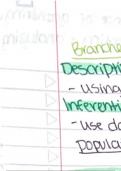 Branche
Descripti
- using
Inferenti
- use da
popula